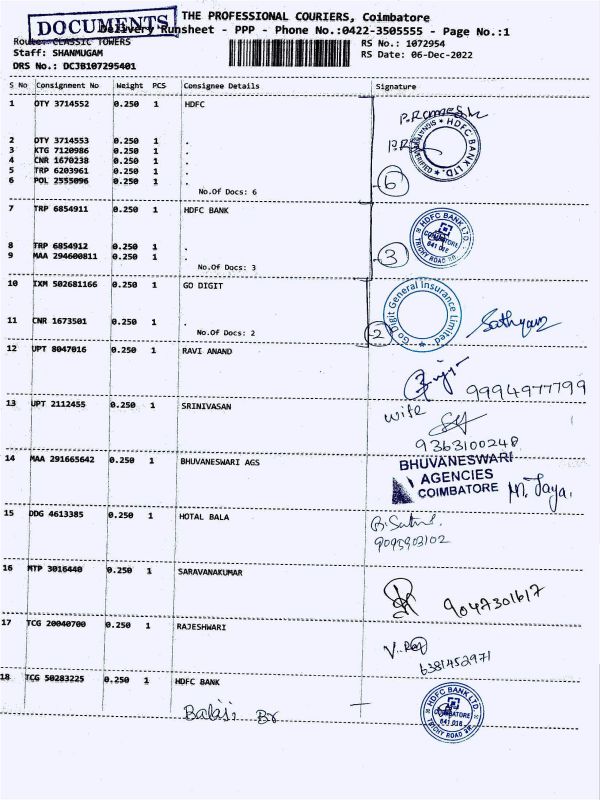 DOCUMENTS
THE PROFESSIONAL COURIERS, Coimbatore
Delivery Runsheet - PPP - Phone No.:0422-3505555 - Page No.:1
Route: CLASSIC TOWERS
RS No.: 1072954
Staff: SHANMUGAM
RS Date: 06-Dec-2022
DRS No.: DCJB107295401
S No Consignment No Weight PCS Consignee Details Signature
1 OTY 3714552 0.250 1 HDFC
P.Ramesh
HDFC BANK LTD.
2 OTY 3714553 0.250 1 .
3 KTG 7120986 0.250 1 .
4 CNR 1670238 0.250 1 .
5 TRP 6203961 0.250 1 .
6 POL 2555096 0.250 1 .
No.Of Docs: 6
6
7 TRP 6854911 0.250 1 HDFC BANK
HDFC BANK LTD.
COIMBATORE
641 018
TRICHY ROAD BR.
8 TRP 6854912 0.250 1 .
9 MAA 294600811 0.250 1 .
No.Of Docs: 3
3
10 IXM 502681166 0.250 1 GO DIGIT
Go Digit General Insurance Limited
11 CNR 1673501 0.250 1 .
No.Of Docs: 2
2
Sathyam
12 UPT 8047016 0.250 1 RAVI ANAND
9994977799
wife
13 UPT 2112455 0.250 1 SRINIVASAN
9363100248
14 MAA 291665642 0.250 1 BHUVANESWARI AGS
BHUVANESWARI
AGENCIES
COIMBATORE
M. Jaya.
15 DDG 4613385 0.250 1 HOTAL BALA
9095903102
16 MTP 3016440 0.250 1 SARAVANAKUMAR
9047301617
17 TCG 20040700 0.250 1 RAJESHWARI
6381452971
18 TCG 50283225 0.250 1 HDFC BANK
Balaji Br
HDFC BANK LTD.
COIMBATORE
641 018
TRICHY ROAD BR.